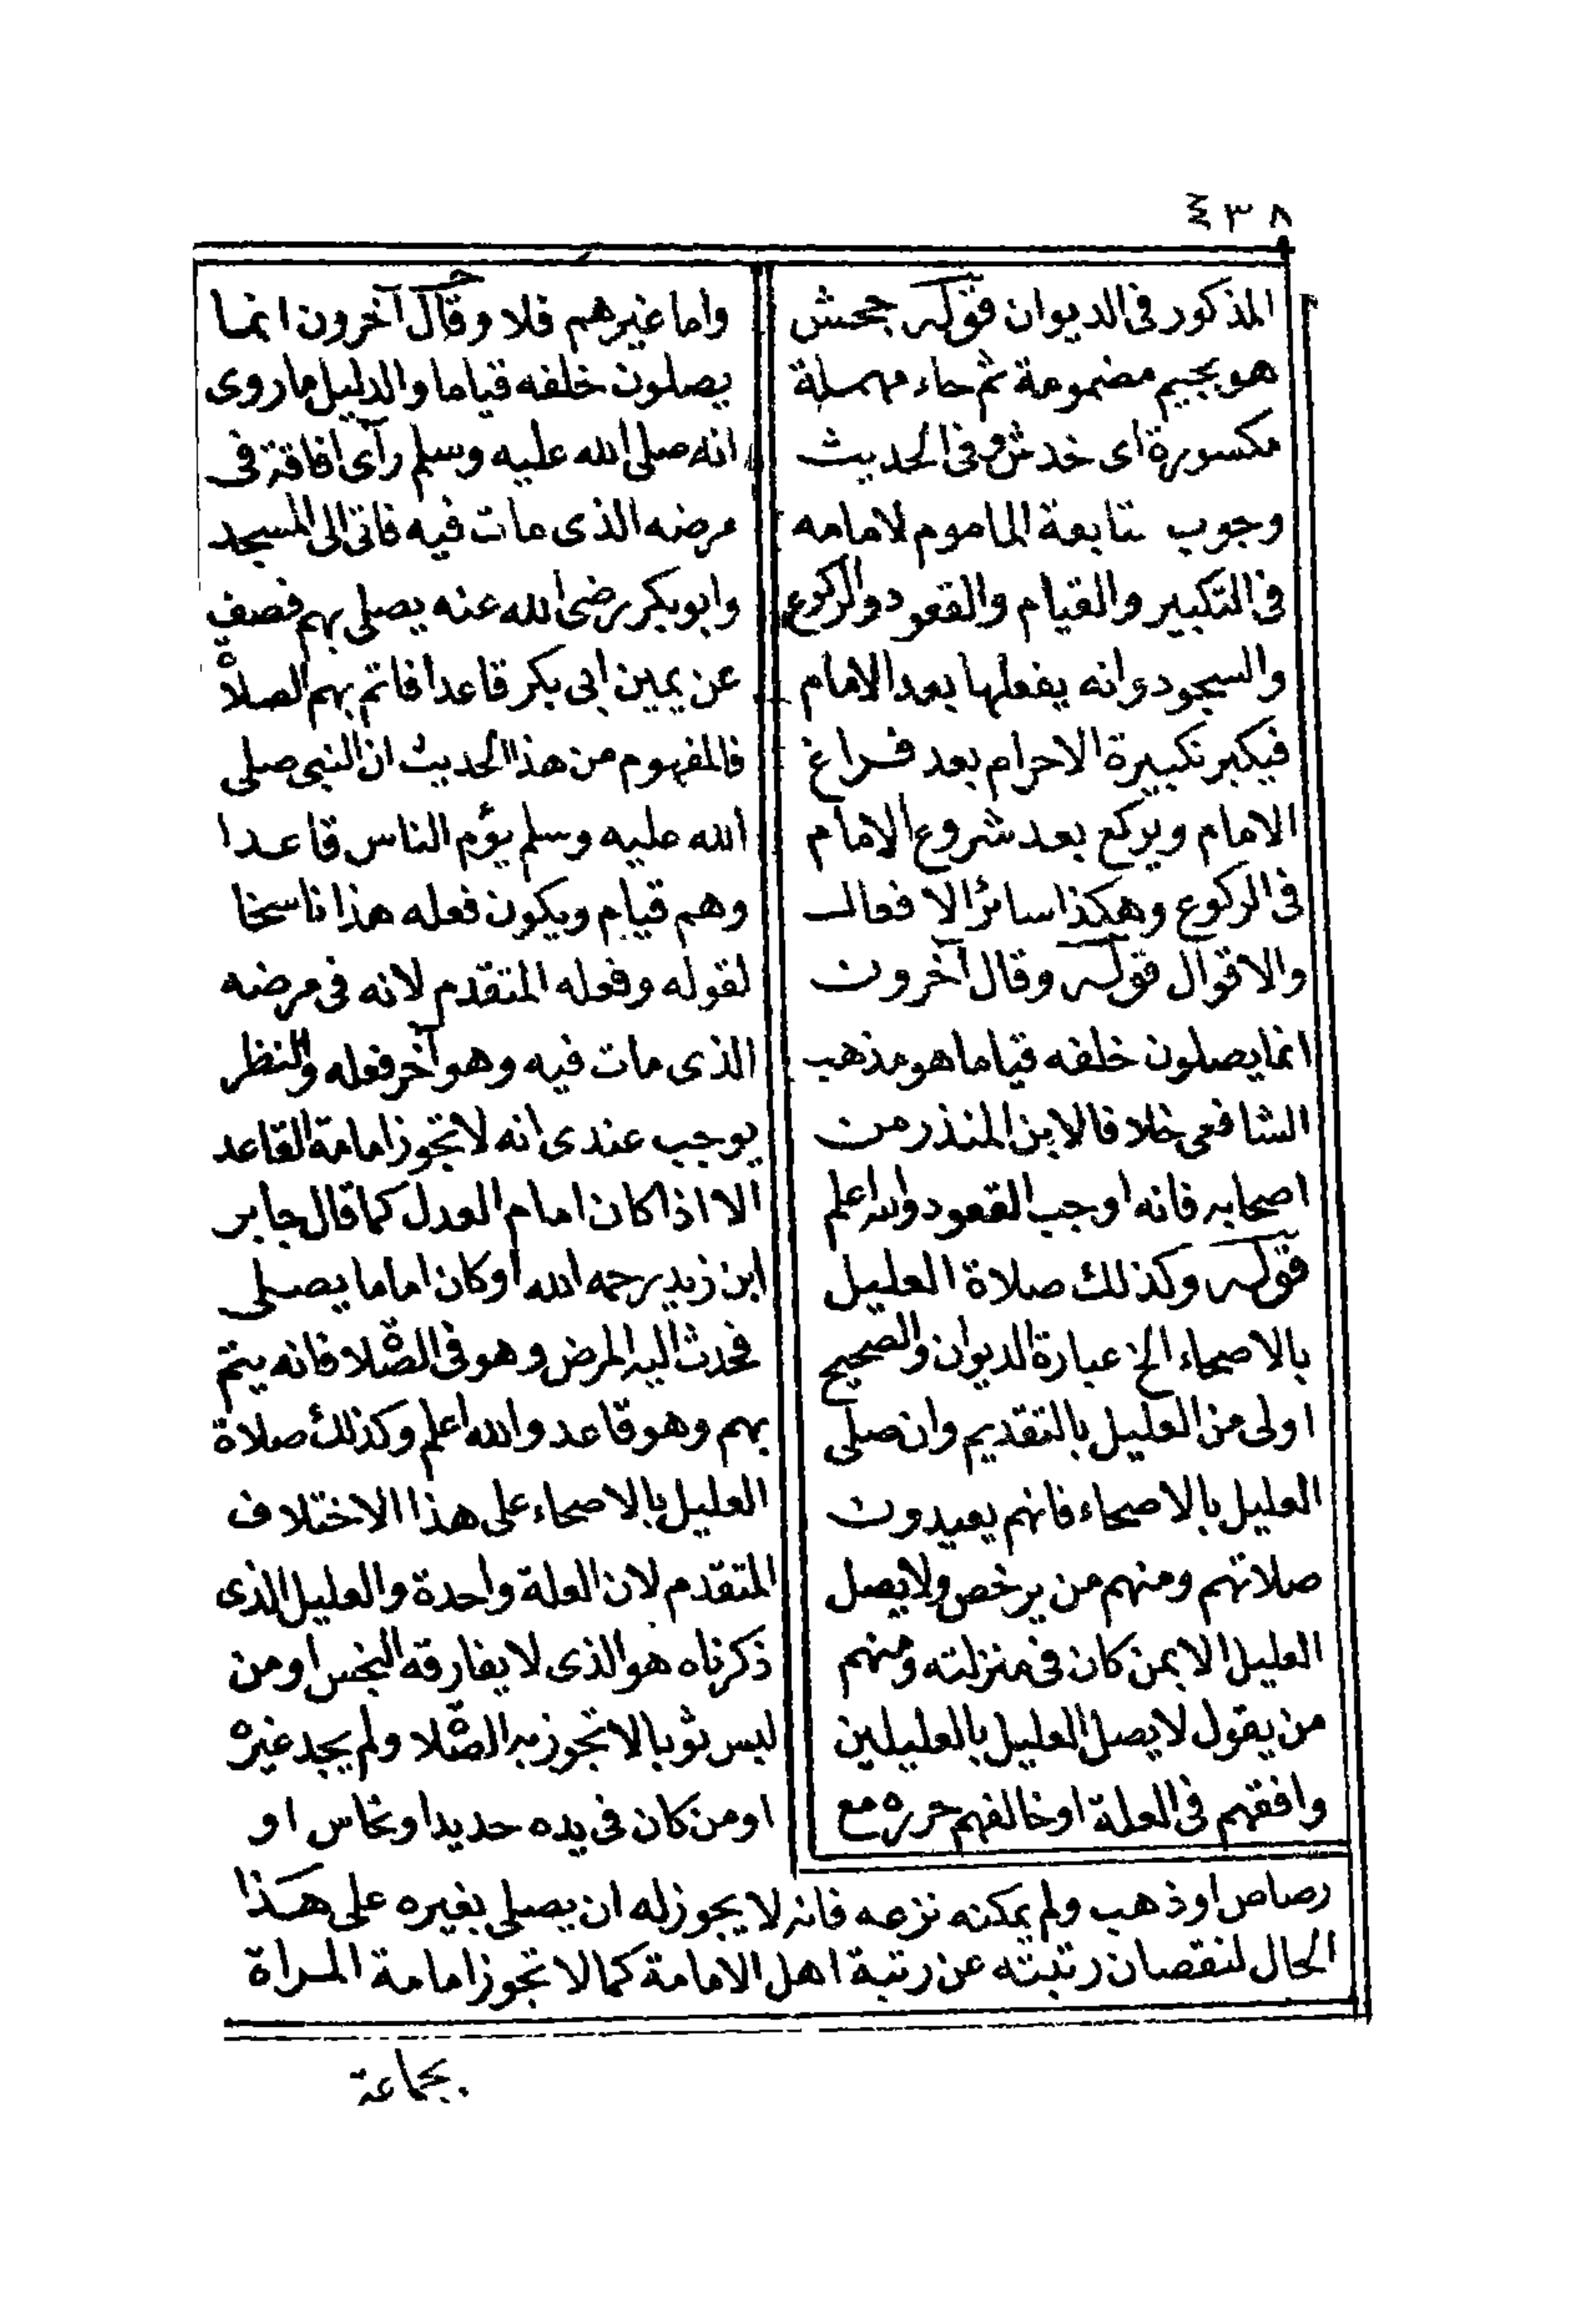 ٤٣٨
المذكور فى الديوان قوله جحش
هو بجيم مضمومة ثم حاء مهملة
مكسورة اى خدش وفى الحديث
وجوب متابعة الماموم لامامه
فى التكبير والقيام والقعود والركوع
والسجود وانه يفعلها بعد الامام
فيكبر تكبيرة الاحرام بعد فراغ
الامام ويركع بعد شروع الامام
فى الركوع وهكذا سائر الافعال
والاقوال قوله وقال آخرون
انما يصلون خلفه قياما هو مذهب
الشافعى خلافا لابن المنذر من
اصحابه فانه اوجب القعود والله اعلم
قوله وكذلك صلاة العليل
بالاصحاء الخ عبارة الديوان والصحيح
اولى من العليل بالتقديم وان صلى
العليل بالاصحاء فانهم يعيدون
صلاتهم ومنهم من يرخص ولا يصل
العليل الا بمن كان فى منزلته ومنهم
من يقول لا يصل العليل بالعليلين
وافقهم فى العلة او خالفهم حرره مع
واما غيرهم فلا وقال آخرون انما
يصلون خلفه قياما والدليل ما روى
انه صلى الله عليه وسلم رآى افاقة فى
مرضه الذى مات فيه فاتى الى المسجد
وابو بكر رضى الله عنه يصلى بهم فصف
عن يمين ابى بكر قاعدا فاتم بهم الصلاة
فالمفهوم من هذا الحديث ان النبى صلى
الله عليه وسلم يؤم الناس قاعدا
وهم قيام ويكون فعله هذا ناسخا
لقوله وفعله المتقدم لانه فى مرضه
الذى مات فيه وهو آخر فعله والنظر
يوجب عندى انه لا تجوز امامة القاعد
الا اذا كان امام العدل كما قال جابر
ابن زيد رحمه الله او كان اماما يصلى
فحدث اليه المرض وهو فى الصلاة فانه يتم
بهم وهو قاعد والله اعلم وكذلك صلاة
العليل بالاصحاء على هذا الاختلاف
المتقدم لان العلة واحدة والعليل الذى
ذكرناه هو الذى لا يفارقه النجس او من
لبس ثوبا لا تجوز به الصلاة ولم يجد غيره
او من كان فى يده حديد او نحاس او
رصاص او ذهب ولم يمكنه نزعه فانه لا يجوز له ان يصلى بغيره على هذا
الحال لنقصان رتبته عن رتبة اهل الامامة كما لا تجوز امامة المراة
بجماعة